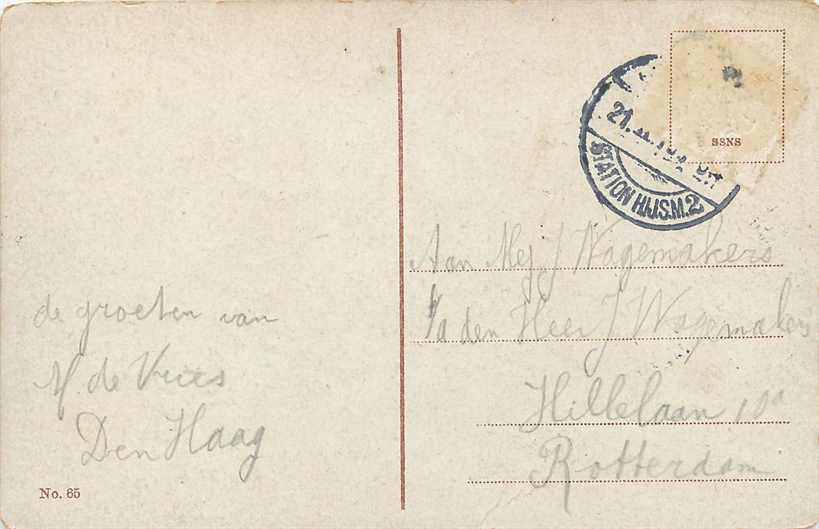 de groeten van
M de Vries
Den Haag
No. 65
SSNS
STATION H.IJ.S.M. 2
Aan Mej J Wagemakers
p/a den Heer J Wagemakers
Hillelaan 10a
Rotterdam